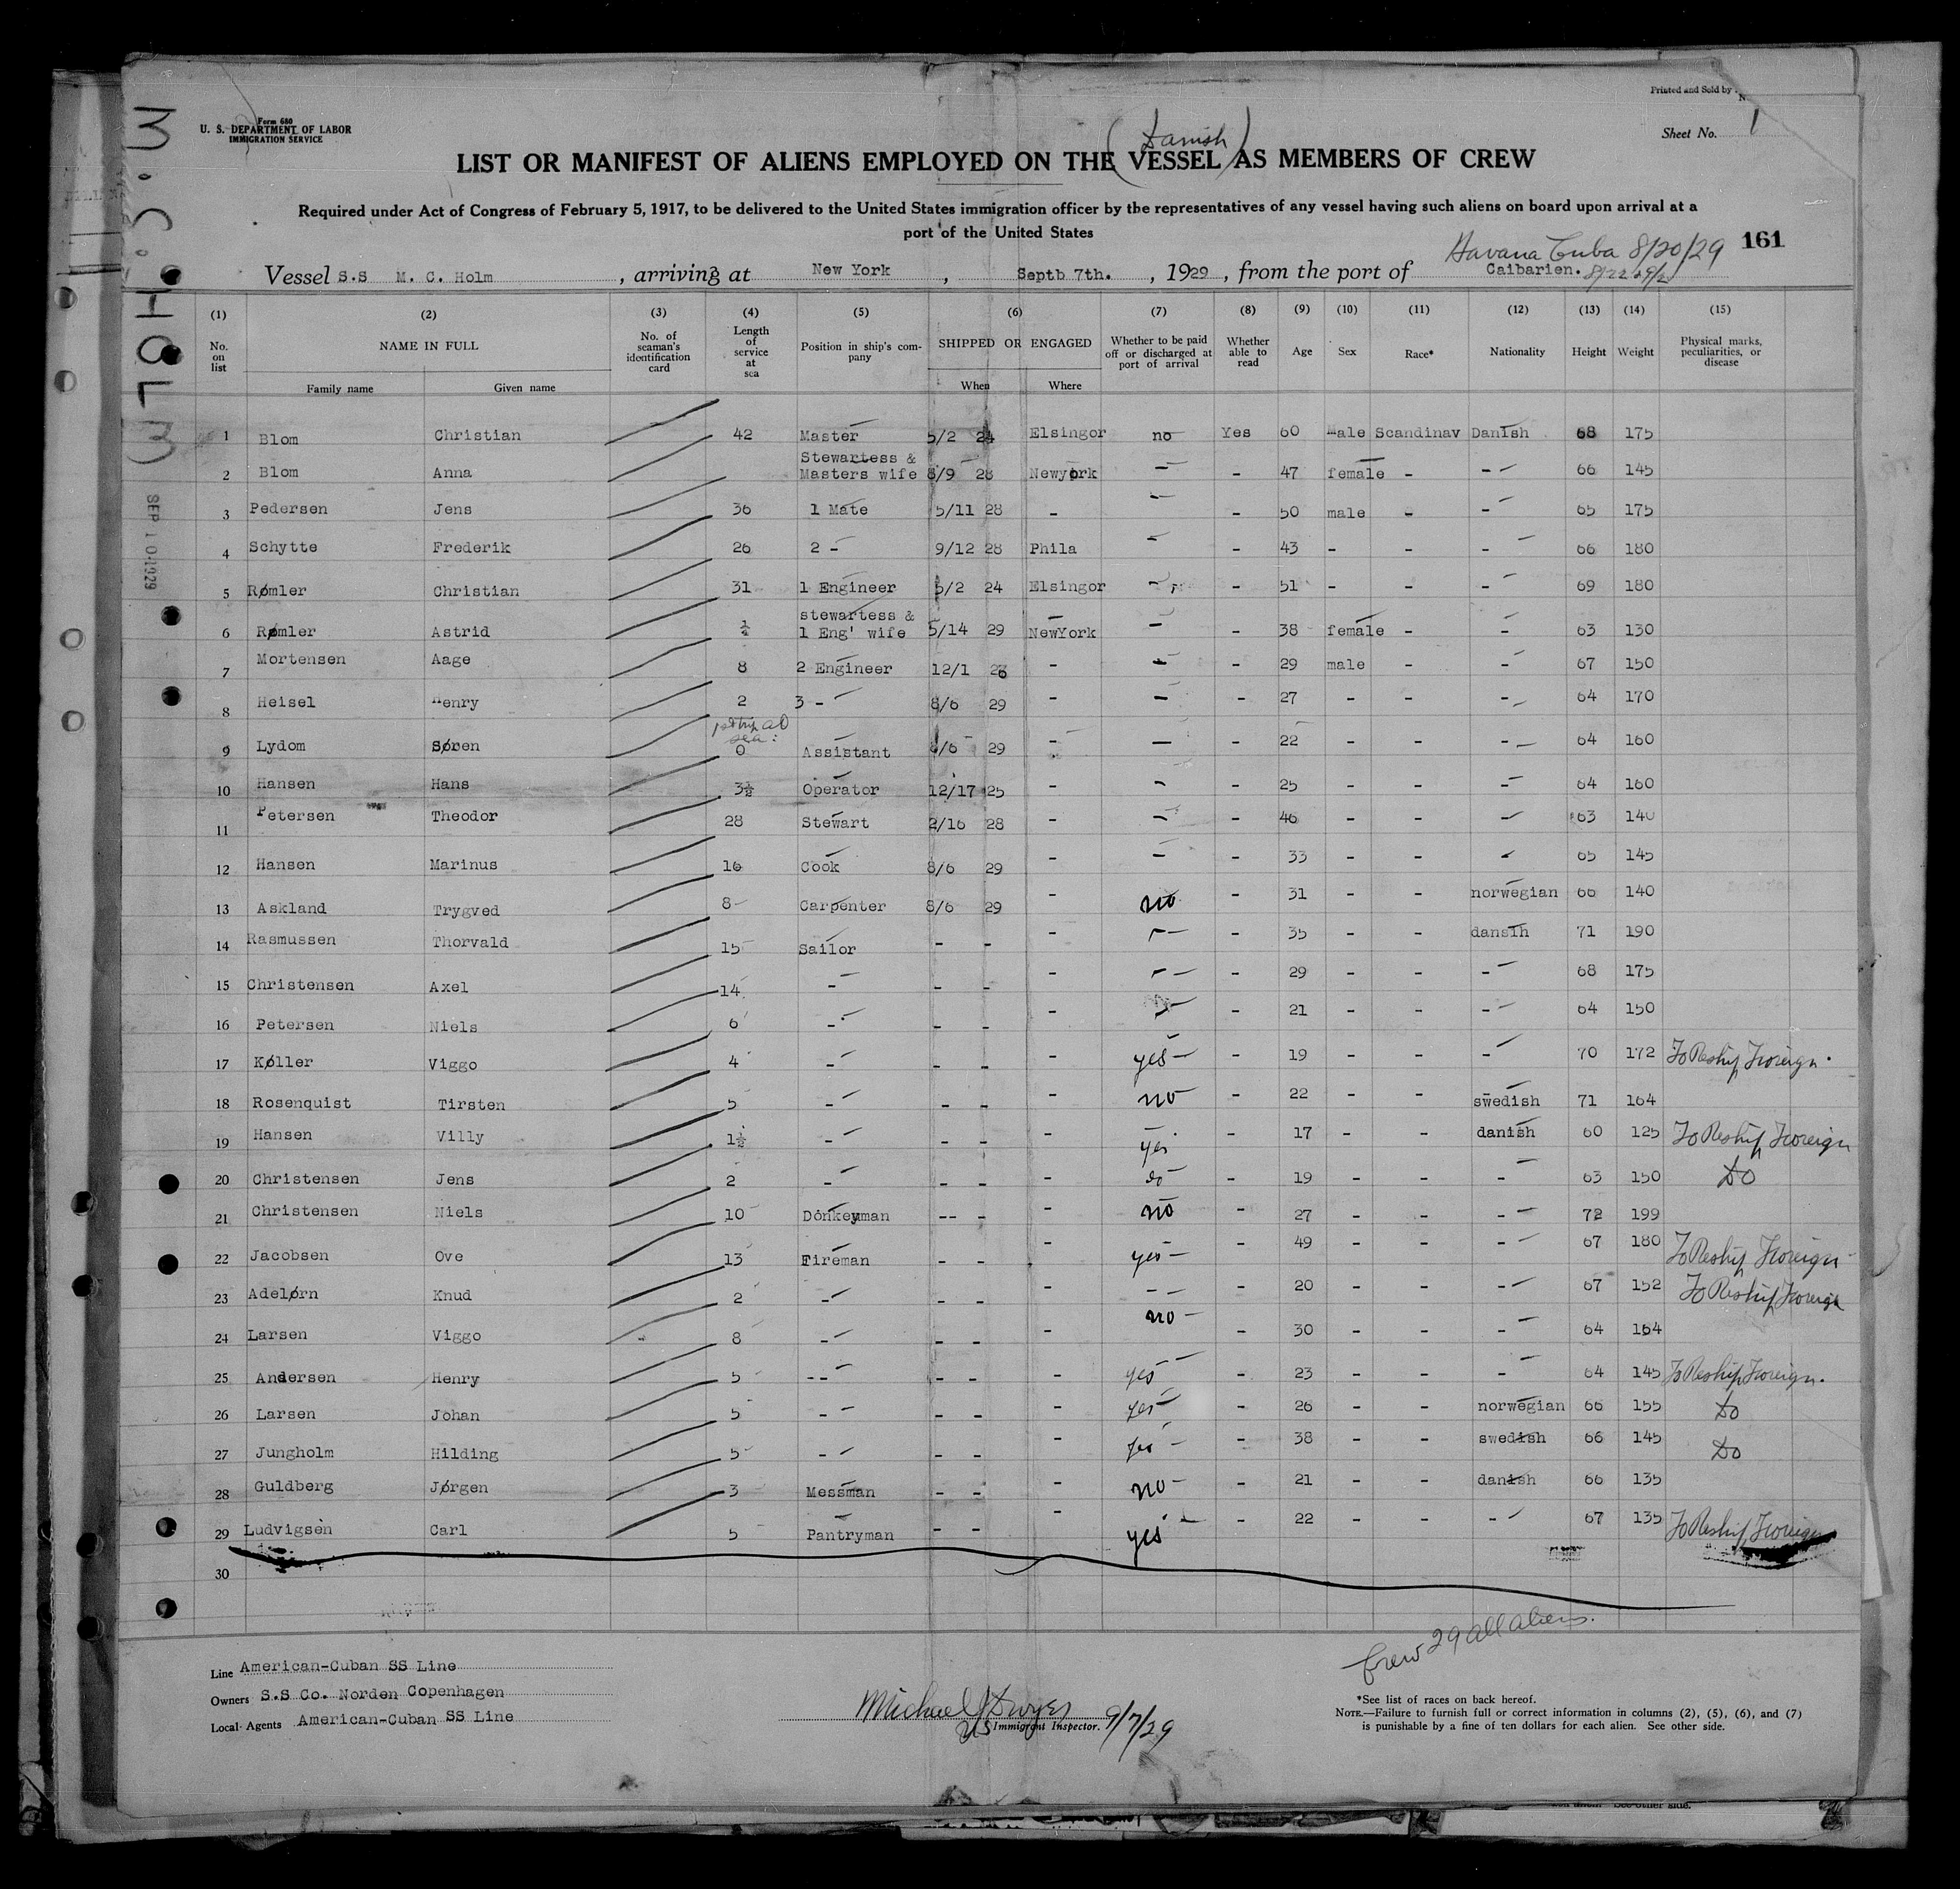 Printed and Sold by
Form 680
U. S. DEPARTMENT OF LABOR
IMMIGRATION SERVICE
Sheet No. 1
(Danish)
LIST OR MANIFEST OF ALIENS EMPLOYED ON THE VESSEL AS MEMBERS OF CREW
Required under Act of Congress of February 5, 1917, to be delivered to the United States immigration officer by the representatives of any vessel having such aliens on board upon arrival at a
port of the United States
Havana Cuba 8/20/29 161
Vessel S.S M. C. Holm, arriving at New York, Septb 7th., 1929, from the port of Caibarien.
M. C. HOLM)
SEP 10 1929
(1) (2) (3) (4) (5) (6) (7) (8) (9) (10) (11) (12) (13) (14) (15)
No. on list NAME IN FULL No. of seaman's identification card Length of service at sea Position in ship's company SHIPPED OR ENGAGED Whether to be paid off or discharged at port of arrival Whether able to read Age Sex Race* Nationality Height Weight Physical marks, peculiarities, or disease
Family name Given name When Where
1 Blom Christian 42 Master 5/2 24 Elsingor no Yes 60 Male Scandinav Danish 68 175
2 Blom Anna Stewartess & Masters wife 8/9 28 Newyork - - 47 female - - 66 145
3 Pedersen Jens 36 1 Mate 5/11 28 - - 50 male - - 65 175
4 Schytte Frederik 26 2 - 9/12 28 Phila - - 43 - - - 66 180
5 Rømler Christian 31 1 Engineer 5/2 24 Elsingor - - 51 - - - 69 180
6 Rømler Astrid ½ stewartess & 1 Eng' wife 5/14 29 NewYork - - 38 female - - 63 130
7 Mortensen Aage 8 2 Engineer 12/1 28 - - - 29 male - - 67 150
8 Heisel Henry 2 3 - 8/6 29 - - - 27 - - - 64 170
9 Lydom Søren 1st trip at sea: 0 Assistant 8/6 29 - - - 22 - - - 64 160
10 Hansen Hans 3½ Operator 12/17 25 - - - 25 - - - 64 160
11 Petersen Theodor 28 Stewart 2/16 28 - - - 46 - - - 63 140
12 Hansen Marinus 16 Cook 8/6 29 - - - 33 - - - 65 145
13 Askland Trygved 8 Carpenter 8/6 29 - no - 31 - - norwegian 66 140
14 Rasmussen Thorvald 15 Sailor - - - - - 35 - - dansih 71 190
15 Christensen Axel 14 - - - - - - 29 - - - 68 175
16 Petersen Niels 6 - - - - - - 21 - - - 64 150
17 Køller Viggo 4 - - - - yes - 19 - - - 70 172 To Reship Foreign.
18 Rosenquist Tirsten 5 - - - - no - 22 - - swedish 71 164
19 Hansen Villy 1½ - - - - yes - 17 - - danish 60 125 To Reship Foreign
20 Christensen Jens 2 - - - - do - 19 - - - 63 150 Do
21 Christensen Niels 10 Donkeyman -- - - no - 27 - - - 72 199
22 Jacobsen Ove 13 Fireman - - - yes - 49 - - - 67 180 To Reship Foreign
23 Adelørn Knud 2 - - - - - - 20 - - - 67 152 To Reship Foreign
24 Larsen Viggo 8 - - - - no - 30 - - - 64 164
25 Andersen Henry 5 -- - - - yes - 23 - - - 64 145 To Reship Foreign.
26 Larsen Johan 5 - - - - - yes - 26 - - norwegian 66 155 Do
27 Jungholm Hilding 5 - - - - yes - 38 - - swedish 66 145 Do
28 Guldberg Jørgen 3 Messman - - - no - 21 - - danish 66 135
29 Ludvigsen Carl 5 Pantryman - - - yes - 22 - - - 67 135 To Reship Foreign
30
Crew 29 all aliens.
Line American-Cuban SS Line
Owners S.S Co. Norden Copenhagen
Local Agents American-Cuban SS Line
Michael J Dwyer
US Immigrant Inspector. 9/7/29
*See list of races on back hereof.
NOTE.—Failure to furnish full or correct information in columns (2), (5), (6), and (7)
is punishable by a fine of ten dollars for each alien. See other side.
See other side.